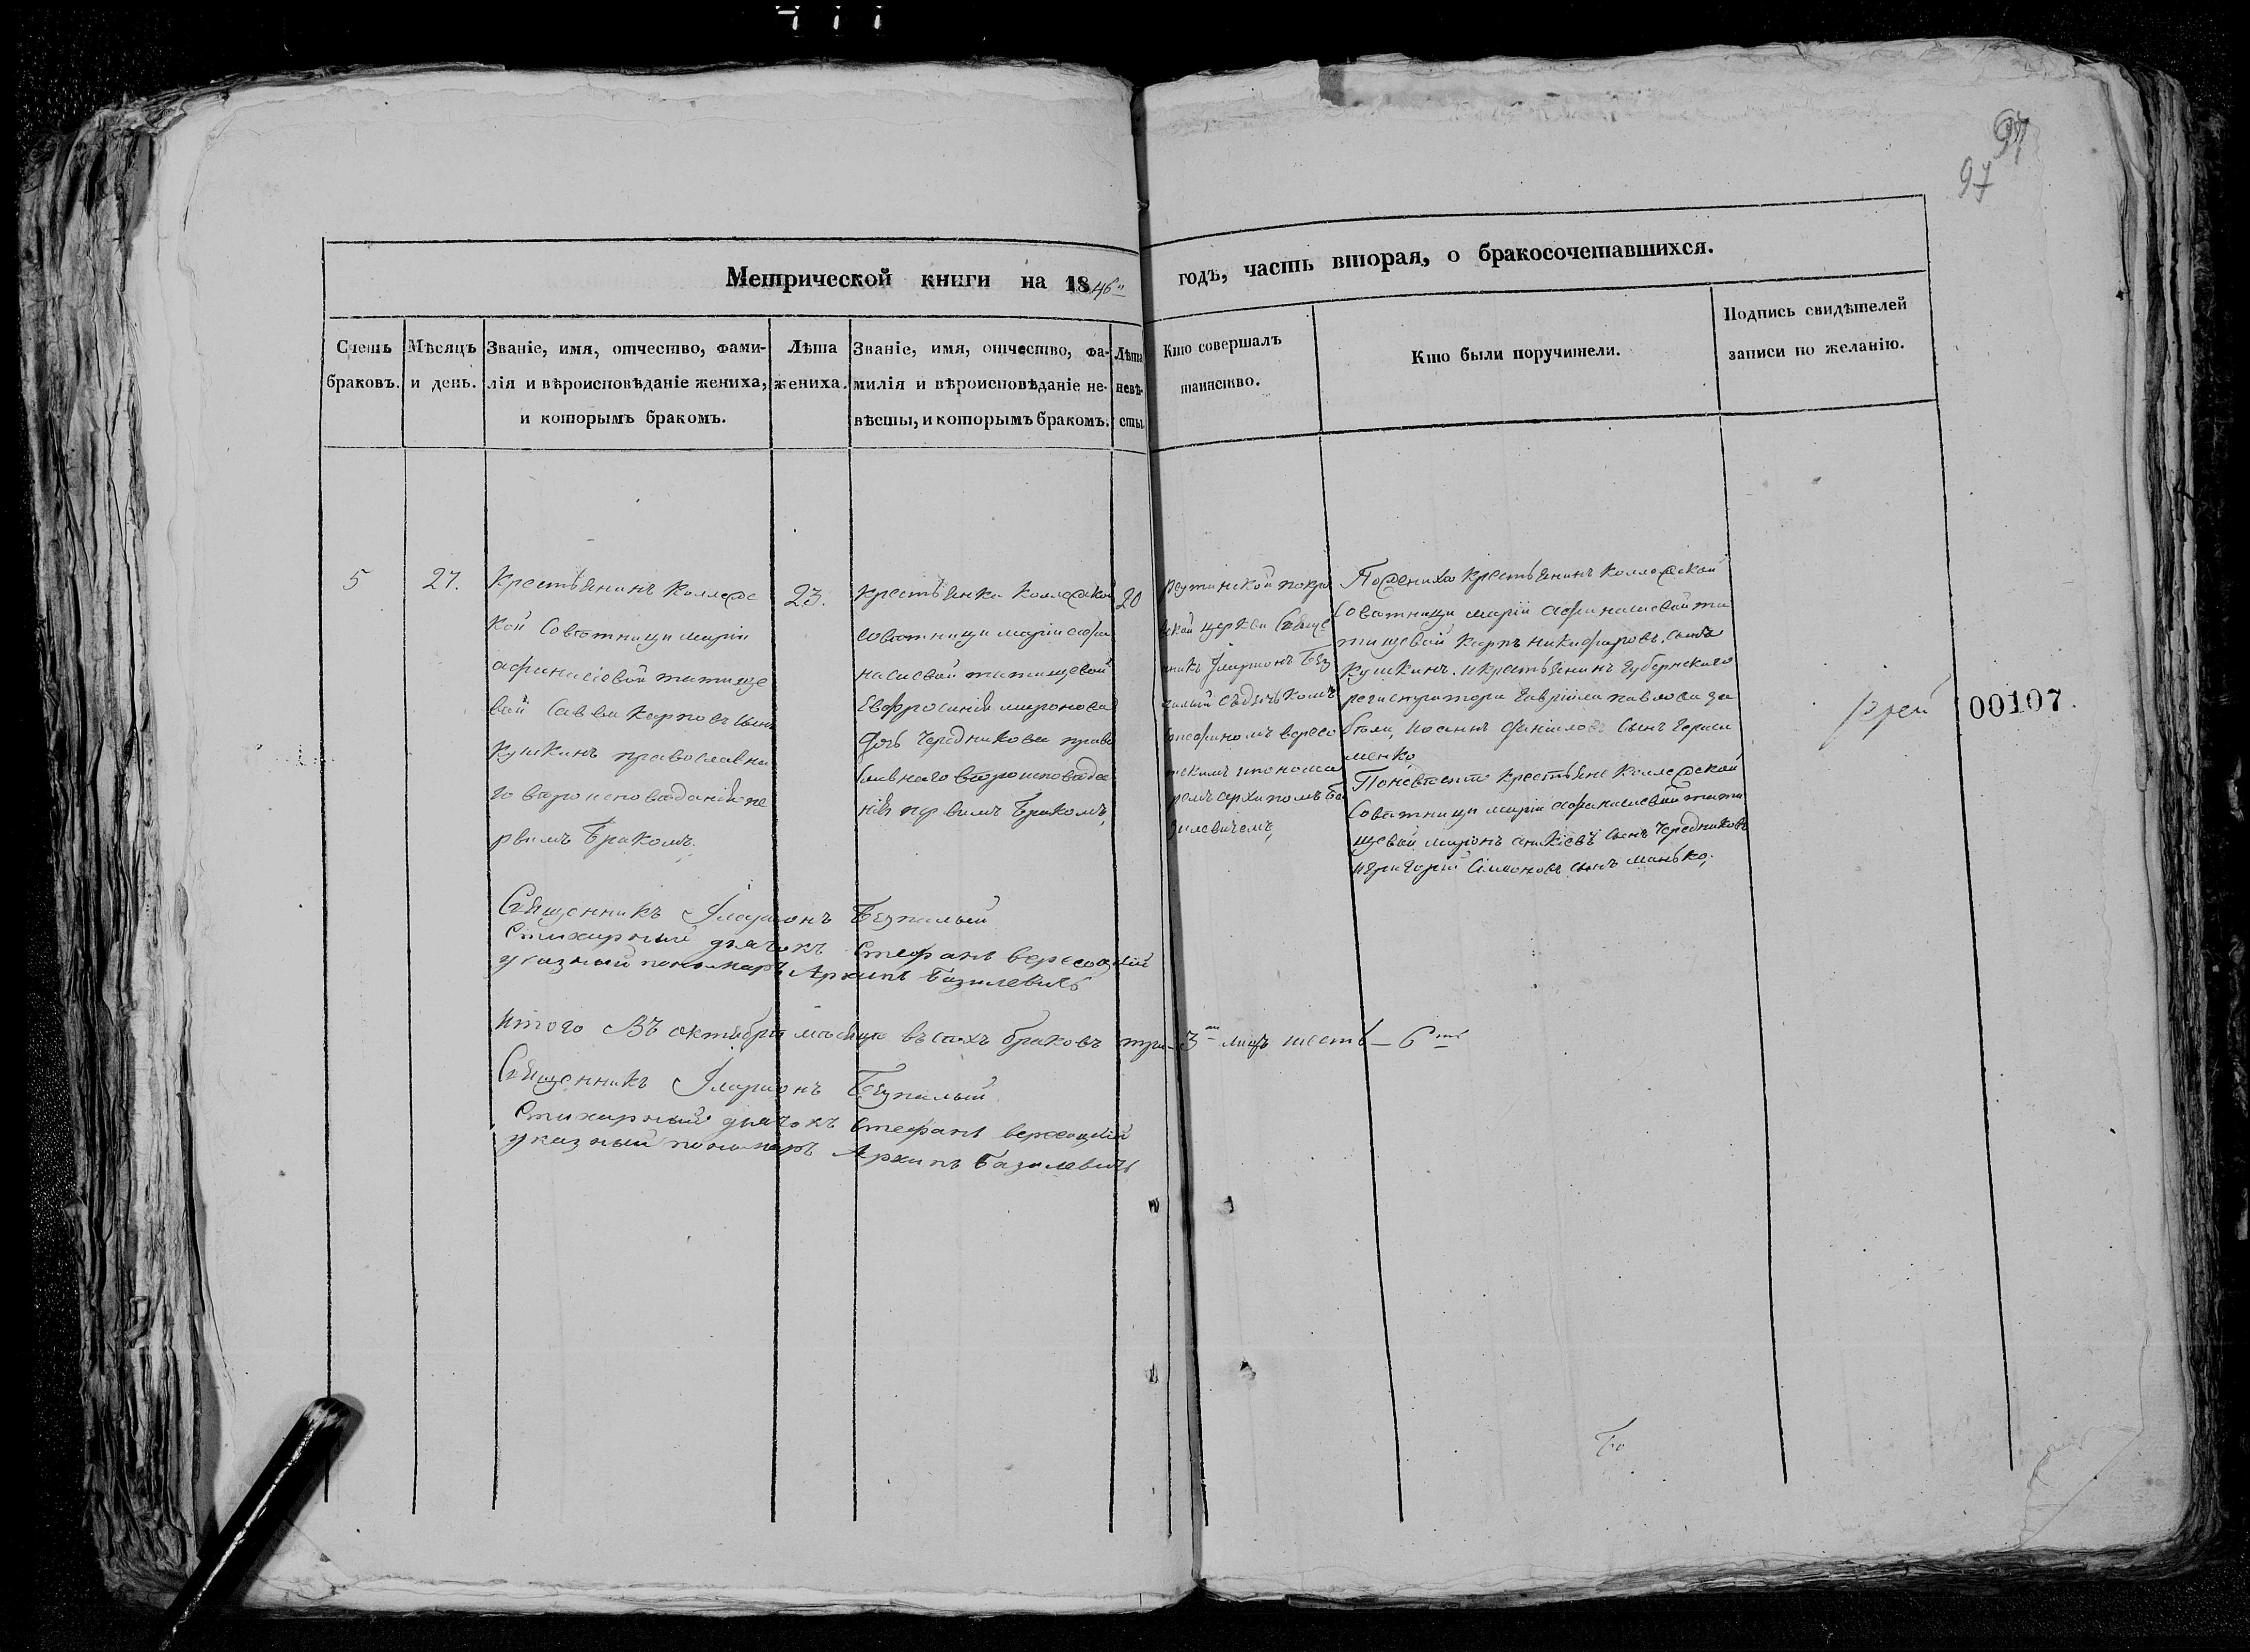 97
97
Метрической книги на 1846 годъ, часть вторая, о бракосочетавшихся.
Счетъ браковъ.
Мѣсяцъ и день.
Званіе, имя, отчество, фами-
лія и вѣроисповѣданіе жениха,
и которымъ бракомъ.
Лѣта
жениха.
Званіе, имя, отчество, фа-
милія и вѣроисповѣданіе не-
вѣсты, и которымъ бракомъ.
Лѣта
невѣ-
сты.
Кто совершалъ
таинство.
Кто были поручители.
Подпись свидѣтелей
записи по желанію.
5
27.
Крестьянинъ Коллеж
кой Советници маріи
афанасіевой татище
вой Савва карповъ сынъ
кушкинъ православна
го вѣроисповѣданія пе
рвимъ бракомъ.
23.
крестьянка коллежкой
советници маріи афа
насиевой татищевой
Евфросинія миронова
дочь Чередникова право
славнаго вѣроисповѣда
нія первимъ бракомъ,
20
реутинской покро
вской церкви Свяще
нникъ Иларионъ Без
палый съ дячкомъ
Стефаномъ вересо
цкимъ и понома
ремъ архипомъ Ба
зилевичемъ,
По женихѣ крестьянинъ коллежской
Советници маріи афанасиевой та
тищевой карпъ никифоровъ сынъ
кушкинъ. и крестьянинъ губернскаго
регистратора гавріила павлова за
Иоаннъ даніиловъ сынъ гераси
менко
По невѣстѣ крестьяне коллежской
Советници маріи афанасиевой тати
щевой миронъ сынъ Чередниковъ
и григорій Симоновъ сынъ манько,
00107.
Священникъ Иларионъ Безпалый
Стихарный дячокъ Стефанъ вересоцкій
указный пономарь Архипъ Базилевичь
Итого въ октябрѣ месяце всѣхъ браковъ три - 3 лицъ шесть - 6
Священникъ Иларионъ Безпалый
Стихарный дячокъ Стефанъ вересоцкій
указный пономарь Архипъ Базилевичь